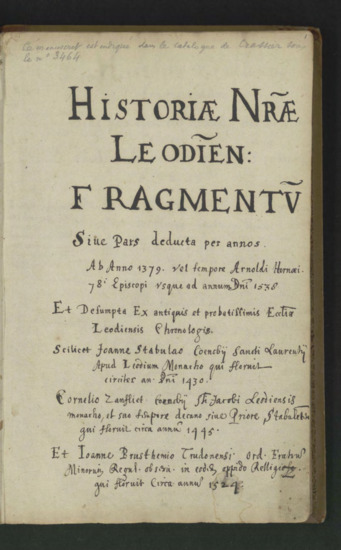 Ce manuscrit est indiqué dans le catalogue de Crassier sous
le n° 3464
HISTORIÆ NRÆ
LEODIEN:
FRAGMENTV̄
Siue Pars deducta per annos.
Ab Anno 1379. vel tempore Arnoldi Hornæi
78i Episcopi vsque ad annum Dni
Et Desumpta Ex antiquis et probatissimis Ecclīæ
Leodiensis Chronologis.
Scilicet Joanne Stabulao Coenoby Sancti Laurenty
Apud Leodium Monacho qui floruit
circiter an. Dni 1430.
Cornelio Zanfliet coenoby Sti Jacobi Leodiensis
monacho, et suo tempore decano siue Priore Stabuleti
qui floruit circa annū 1445.
Et Ioanne Brusthemio Trudonensi ord. Fratrū
Minorū Regul. obserū. in eodē oppido Relligioso
qui floruit Circa annū